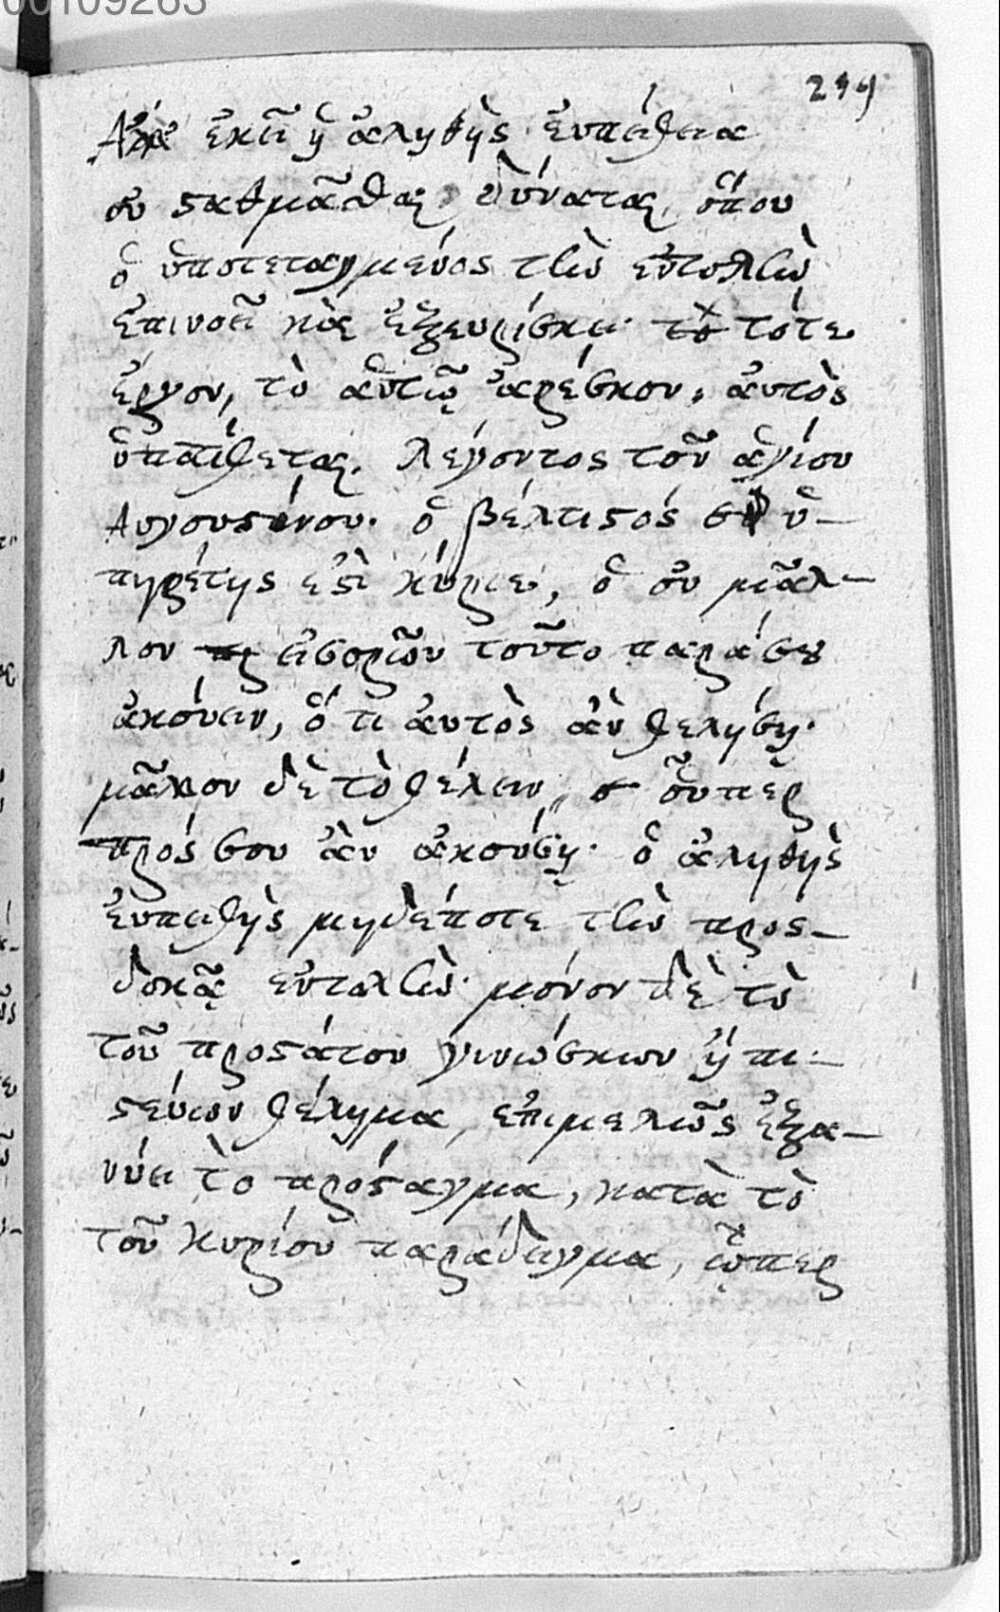 00109263
299
ἐκεῖ ἡ ἀληθὴς ἐυπείθεια
οὐ σταθμᾶσθαι δύναται, ὅπου
ὁ ὑποτεταγμένος τὴν ἐντολὴν
ἐπινοεῖ καὶ ἐξευρίσκει· τὸ τότε
ἔργον, τὸ ἀυτῷ ἀρέσκον, ἀυτὸς
ὑπείθεται. λέγοντος τοῦ ἁγίου
Αυγουστίνου· ὁ βέλτιστός σου ὑ-
πηρέτης ἐστὶ κύριε, ὁ οὐ μᾶλ-
λον εἰσορῶν τοῦτο παρά σου
ἀκούειν, ὅ τι ἀυτὸς ἂν θελήσῃ·
μᾶλλον δὲ τὸ θέλειν, οὗπερ
πρός σου ἂν ἀκούσῃ· ὁ ἀληθὴς
ἐυπειθὴς μηδέποτε τὴν προς-
δοκᾷ ἐντολὴν· μόνον δὲ τὸ
τοῦ προστάτου γινώσκων ἢ πι-
στεύων θέλημα, ἐπιμελῶς ἐξα-
νύει τὸ πρόσταγμα, κατὰ τὸ
τοῦ κυρίου παράδειγμα, ᾧπερ